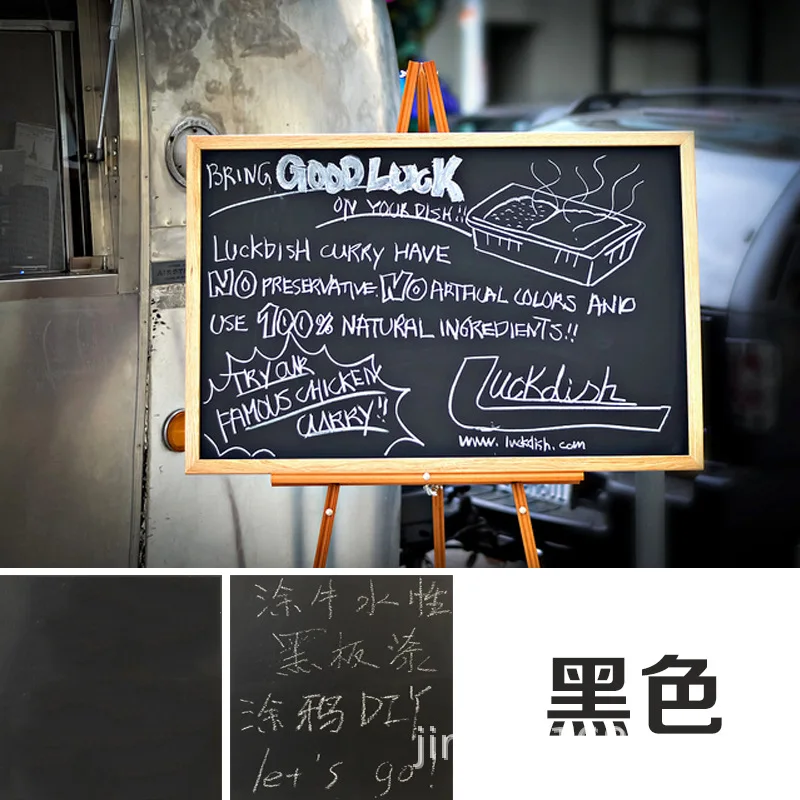 BRING GOOD LUCK
ON YOUR DISH!!
LUCKDISH CURRY HAVE
NO PRESERVATIVE. NO ARTFICAL COLORS AND
USE 100% NATURAL INGREDIENTS!!
TRY OUR
FAMOUS CHICKEN
CURRY!!
Luckdish
www. luckdish. com
涂牛水性
黑板漆
涂鸦DIY
let's go!
黑色